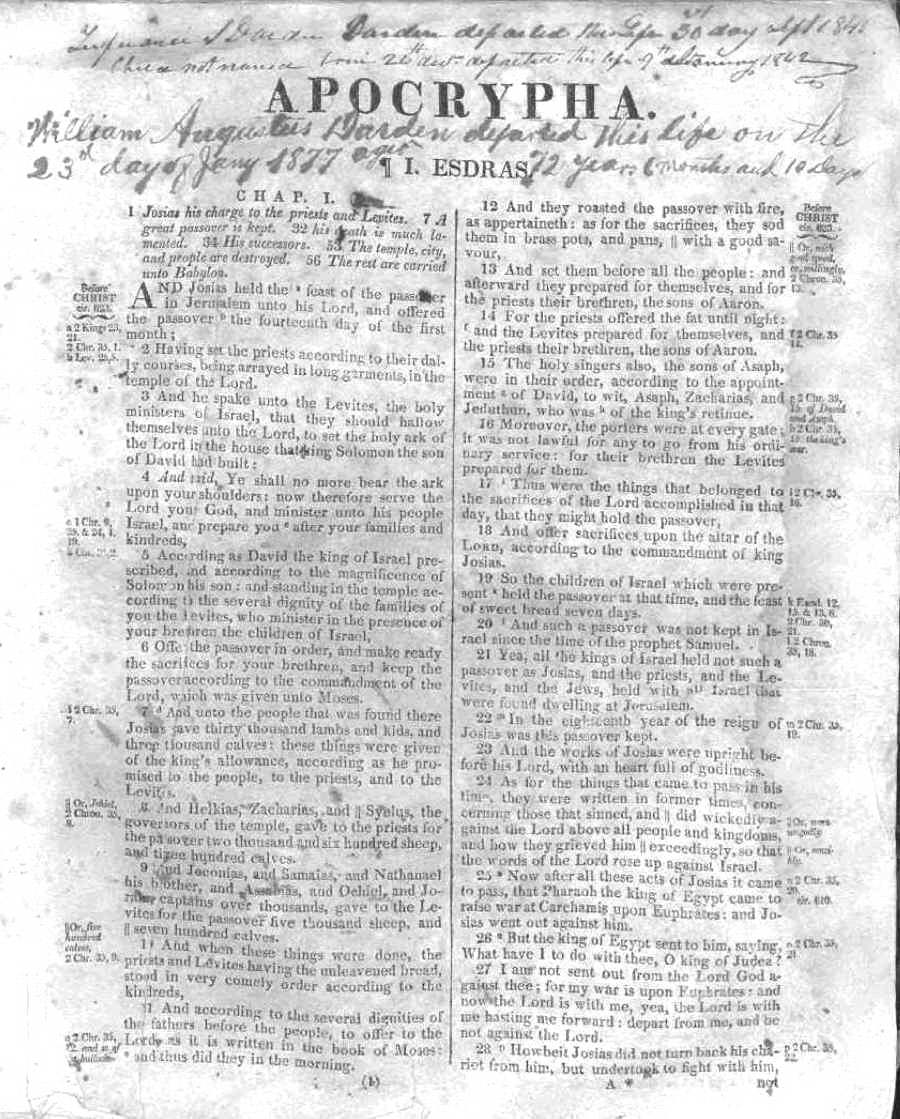 Darden departed this Life 30 day Sept 184
Child not named born 24th departed this life 1842
APOCRYPHA.
William Augustus Darden departed this life on the
23rd day of Jany 1877 aged 72 Years 6 months and 10 Days
¶ I. ESDRAS.
CHAP. I.
1 Josias his charge to the priests and Levites. 7 A
great passover is kept. 32 his death is much la-
mented. 34 His successors. 53 The temple, city,
and people are destroyed. 56 The rest are carried
unto Babylon.
Before
CHRIST
cir. 623.
a 2 Kings 23,
21.
2 Chr. 35, 1.
b Lev. 23, 5.
AND Josias held the a feast of the passover
in Jerusalem unto his Lord, and offered
the passover b the fourteenth day of the first
month;
2 Having set the priests according to their dai-
ly courses, being arrayed in long garments, in the
temple of the Lord.
3 And he spake unto the Levites, the holy
ministers of Israel, that they should hallow
themselves unto the Lord, to set the holy ark of
the Lord in the house that king Solomon the son
of David had built:
4 And said, Ye shall no more bear the ark
upon your shoulders: now therefore serve the
Lord your God, and minister unto his people
Israel, and prepare you c after your families and
kindreds,
c 1 Chr. 9,
19.
5 According as David the king of Israel pre-
scribed, and according to the magnificence of
Solomon his son: and standing in the temple ac-
cording to the several dignity of the families of
you the Levites, who minister in the presence of
your brethren the children of Israel,
6 Offer the passover in order, and make ready
the sacrifices for your brethren, and keep the
passover according to the commandment of the
Lord, which was given unto Moses.
d 2 Chr. 35,
7.
7 d And unto the people that was found there
Josias gave thirty thousand lambs and kids, and
three thousand calves: these things were given
of the king's allowance, according as he pro-
mised to the people, to the priests, and to the
Levites.
|| Or, Jehiel,
2 Chron. 35,
8.
8 And Helkias, Zacharias, and || Syelus, the
governors of the temple, gave to the priests for
the passover two thousand and six hundred sheep,
and three hundred calves.
9 And Jeconias, and Samaias, and Nathanael
his brother, and Assabias, and Ochiel, and Jo-
ram captains over thousands, gave to the Le-
vites for the passover five thousand sheep, and
|| seven hundred calves.
|| Or, five
hundred
calves,
2 Chr. 35, 9.
10 And when these things were done, the
priests and Levites having the unleavened bread,
stood in very comely order according to the
kindreds,
11 And according to the several dignities of
the fathers before the people, to offer to the
Lord, as it is written in the book of Moses:
e and thus did they in the morning.
e 2 Chr. 35,
12.
(b)
12 And they roasted the passover with fire,
as appertaineth: as for the sacrifices, they sod
them in brass pots, and pans, || with a good sa-
vour,
Before
CHRIST
cir. 623.
|| Or, with
good speed,
or, willingly,
2 Chron. 35,
13.
13 And set them before all the people: and
afterward they prepared for themselves, and for
the priests their brethren, the sons of Aaron.
14 For the priests offered the fat until night:
f and the Levites prepared for themselves, and
the priests their brethren, the sons of Aaron.
f 2 Chr. 35
14.
15 The holy singers also, the sons of Asaph,
were in their order, according to the appoint-
ment g of David, to wit, Asaph, Zacharias, and
Jeduthun, who was h of the king's retinue.
g 2 Chr. 35,
15. of David
and Asaph.
h 2 Chr. 35,
15. the king's
seer.
16 Moreover, the porters were at every gate;
it was not lawful for any to go from his ordi-
nary service: for their brethren the Levites
prepared for them.
17 i Thus were the things that belonged to
the sacrifices of the Lord accomplished in that
day, that they might hold the passover,
i 2 Chr. 35,
16.
18 And offer sacrifices upon the altar of the
LORD, according to the commandment of king
Josias.
19 So the children of Israel which were pre-
sent k held the passover at that time, and the feast
of sweet bread seven days.
k Exod. 12,
15. & 13, 6.
2 Chr. 30,
21.
20 l And such a passover was not kept in Is-
rael since the time of the prophet Samuel.
l 2 Chron.
35, 18.
21 Yea, all the kings of Israel held not such a
passover as Josias, and the priests, and the Le-
vites, and the Jews, held with all Israel that
were found dwelling at Jerusalem.
22 m In the eighteenth year of the reign of
Josias was this passover kept.
m 2 Chr. 35,
19.
23 And the works of Josias were upright be-
fore his Lord, with an heart full of godliness.
24 As for the things that came to pass in his
time, they were written in former times, con-
cerning those that sinned, and || did wickedly a-
gainst the Lord above all people and kingdoms,
and how they grieved him || exceedingly, so that
the words of the Lord rose up against Israel.
|| Or, were
ungodly.
|| Or, sensi-
bly.
25 n Now after all these acts of Josias it came
to pass, that Pharaoh the king of Egypt came to
raise war at Carchamis upon Euphrates: and Jo-
sias went out against him.
n 2 Chr. 35,
20.
cir. 610.
26 o But the king of Egypt sent to him, saying,
What have I to do with thee, O king of Judea?
o 2 Chr. 35,
21
27 I am not sent out from the Lord God a-
gainst thee; for my war is upon Euphrates: and
now the Lord is with me, yea, the Lord is with
me hasting me forward: depart from me, and be
not against the Lord.
28 p Howbeit Josias did not turn back his cha-
riot from him, but undertook to fight with him,
p 2 Chr. 35,
22.
A * not